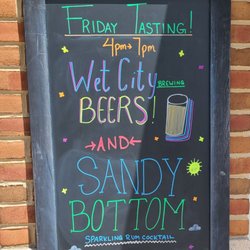 FRIDAY TASTING!
4pm→7pm
WET CITY BREWING
BEERS!
→AND←
SANDY
BOTTOM
SPARKLING RUM COCKTAIL